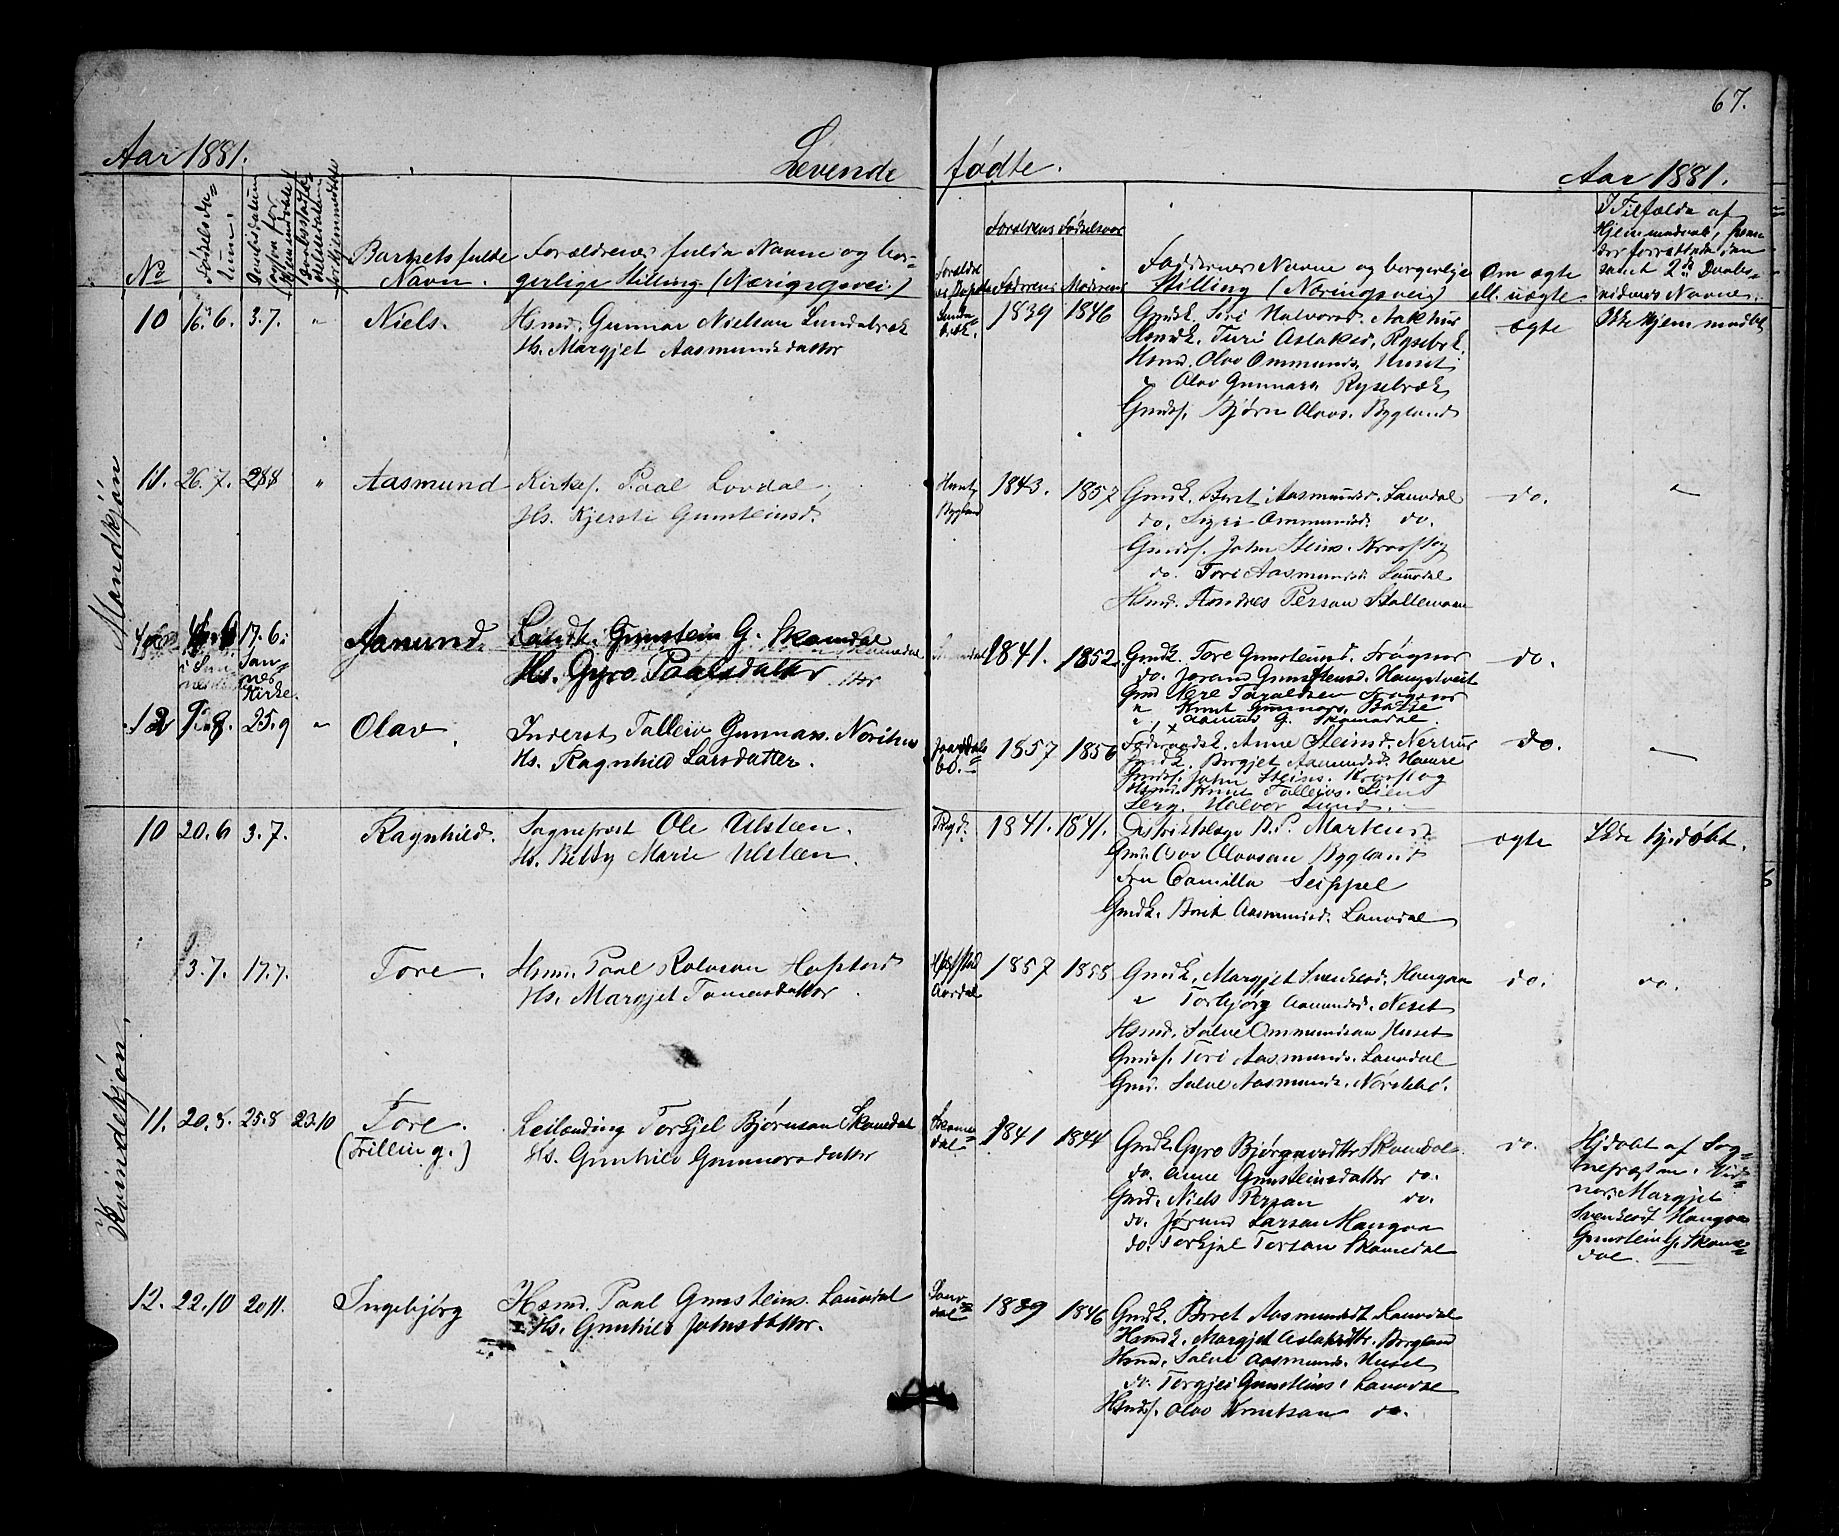 67.
Aar 1881. Levende fødte. Aar 1881.
Mandkjøn
Kvindekjøn.
No
Fødselsda-
tum.
Daabsdatum
Barnets fulde
Navn.
Forældrenes fulde Navne og bor-
gerlige Stilling (Næringsvei)
Forældres Fødselsaar
Faderens Moderens
Faddernes Navne og borgerlige
Stilling (Næringsvei)
Om ægte
ell. uægte
I Tilfælde af
Hjemmedaab,
Navne.
10 16.6. 3.7. " Niels.
Hsmd. Gunnar Nielsen Lundebræk
Hs. Margjet Aasmundsdatter
1839 1846
Gmdk. Siri Halvorsd. Aakhus
Hsmdk. Turi Aslaksd. Rysebrek.
Hsmd. Olav Ommunds. Huset
" Olav Gunnars. Rysebræk
Gmds. Bjørn Olavs. Bygland
ægte
Ikke hjemmedøbt
11. 26.7. 28.8 " Aasmund
Kirkes. Paal Lovdal,
Hs. Kjersti Gunsteinsd.
Bygland
1843. 1857
Gmdk. Berit Aasmundsd. Lauvdal
do. Sigri Ommundsd. do.
Gmds. John Steins. Kvaastog
do. Tori Aasmunds. Lauvdal
Hsmd. Andres Person Stallemoen
do.
17.6.
San-
nes
Kirke.
Aamund.
Landh. Gunstein G. Skomedal
Hs. Gyro Paalsdatter
1841. 1852.
Gmdk. Tore Gunsteinsd. Frøgner
do. Jorand Gunsteinsd. Haugetveit
Gmd Nere Taraldsen Frøgner
" Knut Gunnars.
" Aamund G. Skomedal.
do.
12 9.8. 25.9 " Olav.
Inderst Talleiv Gunnars. Norihus
Hs. Ragnhild Larsdatter.
1857 1856
Føderaadsk. Anne Steinsd. Nerhus
Gmdk. Birgjet Aamundsd. Hamre
Gmds. John Steins. Kvaastog
Hsmd. Knut Talleivs. Lien
Serg. Halvor Lund.
do.
10 20.6 3.7. Ragnhild.
Sogneprest Ole Ulsteen.
Hs. Betty Marie Ulsteen.
1841. 1841.
Distriktslæge A. P. Martens
Gmd. Olav Olavsen Bygland
Fru Camilla Seippel
Gmdk. Berit Aasmundsd. Lauvdal
ægte
Ikke hj.døbt.
3.7. 17.7. Tore.
Hsmd. Paal Rolvsen
Hs. Margjet Tomasdatter
1857 1858
Gmdk. Margjet Svenkesd. Haugaa
" Torbjørg Aamundsd. Neset
Hsmd. Salve Ommundsen Huset
Gmds. Tori Aasmunds. Lauvdal
Gmd. Salve Aasmunds. Norstebø.
do. do.
11. 20.8. 25.8 23.10 Tore.
(Trilling.)
Leilænding Torkjel Bjørnsen Skomedal
Hs. Gunhild Gunnarsdatter
Skome-
dal
1841 1844
Gmdk. Gyro Bjørgavsdtr Skomdal.
do. Anne Gunsteinsdatter do.
Gmd. Niels Person do.
do. Jørund Larsen Maugaa
do. Torkjel Torsen Skomedal
do.
Hjdøbt af Sog-
nepræsten. Vid-
ner: Margjet
Svenkesd Haugaa
Gunstein G. Skome-
dal.
12. 22.10 20.11. Ingebjørg
Hsmd. Paal Gunsteins. Lauvdal
Hs. Gunhild Johnsdatter.
Lauv-
dal
1839 1846
Gmdk. Beret Aasmundsdt Lauvdal
Hsmdk. Margjet Aslaksdtr. Bergland
Hsmd. Salve Aasmunds. Huset
do. Torgjei Gunsteins. Lauvdal
Hsmds. Olav Knutsen do.